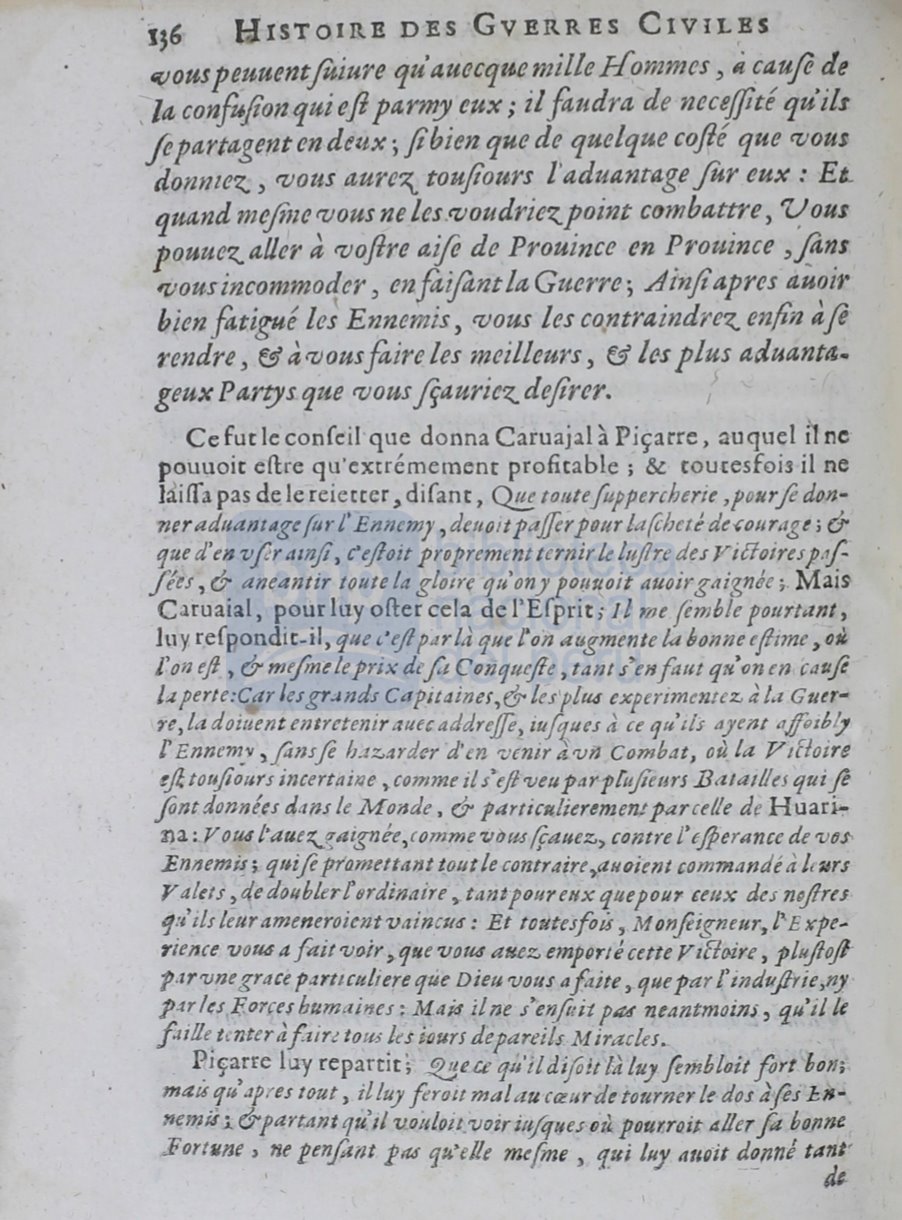 136 HISTOIRE DES GVERRES CIVILES
vous peuuent ſuiure qu'auecque mille Hommes, à cauſe de
la confuſion qui eſt parmy eux; il faudra de neceſſité qu'ils
ſe partagent en deux; ſi bien que de quelque coſté que vous
donniez, vous aurez touſiours l'aduantage ſur eux : Et
quand meſme vous ne les voudriez point combattre, Vous
pouuez aller à voſtre aiſe de Prouince en Prouince, ſans
vous incommoder, en faiſant la Guerre; Ainſi apres auoir
bien fatigué les Ennemis, vous les contraindrez enfin à ſe
rendre, & à vous faire les meilleurs, & les plus aduanta-
geux Partys que vous ſçauriez deſirer.
Ce fut le conſeil que donna Caruajal à Piçarre, auquel il ne
pouuoit eſtre qu'extrémement profitable ; & toutesfois il ne
laiſſa pas de le reietter, diſant, Que toute ſuppercherie, pour ſe don-
ner aduantage ſur l'Ennemy, deuoit paſſer pour laſcheté de courage; &
que d'en vſer ainſi, c'eſtoit proprement ternir le luſtre des Victoires paſ-
ſées, & aneantir toute la gloire qu'on y pouuoit auoir gaignée; Mais
Caruaial, pour luy oſter cela de l'Eſprit; Il me ſemble pourtant,
luy reſpondit-il, que c'eſt par là que l'on augmente la bonne eſtime, où
l'on eſt, & meſme le prix de ſa Conqueſte, tant s'en faut qu'on en cauſe
la perte: Car les grands Capitaines, & les plus experimentez à la Guer-
re, la doiuent entretenir auec addreſſe, iuſques à ce qu'ils ayent affoibly
l'Ennemy, ſans ſe hazarder d'en venir à vn Combat, où la Victoire
eſt touſiours incertaine, comme il s'eſt veu par pluſieurs Batailles qui ſe
ſont données dans le Monde, & particulierement par celle de Huari-
na: Vous l'auez gaignée, comme vous ſçauez, contre l'eſperance de vos
Ennemis; qui ſe promettant tout le contraire, auoient commandé à leurs
Valets, de doubler l'ordinaire, tant pour eux que pour ceux des noſtres
qu'ils leur ameneroient vaincus : Et toutesfois, Monſeigneur, l'Expe-
rience vous a fait voir, que vous auez emporté cette Victoire, pluſtoſt
par vne grace particuliere que Dieu vous a faite, que par l'induſtrie, ny
par les Forces humaines : Mais il ne s'enſuit pas neantmoins, qu'il le
faille tenter à faire tous les iours de pareils Miracles.
Piçarre luy repartit; Que ce qu'il diſoit là luy ſembloit fort bon;
mais qu'apres tout, il luy feroit mal au cœur de tourner le dos à ſes En-
nemis; & partant qu'il vouloit voir iuſques où pourroit aller ſa bonne
Fortune, ne penſant pas qu'elle meſme, qui luy auoit donné tant
de
biblioteca
nacional
del perú